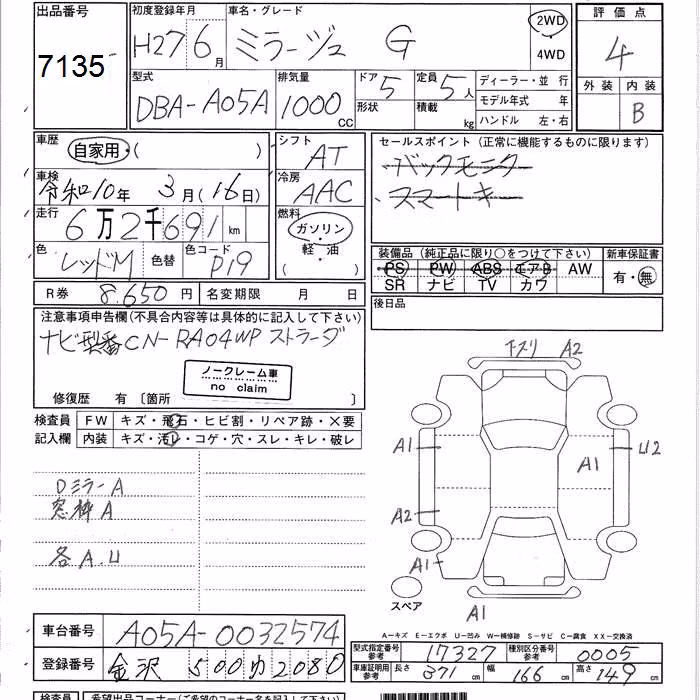 出品番号
7135
初度登録年月
H27 6月
車名・グレード
ミラージュ G
2WD
・
4WD
評価点
4
外装 内装
B
型式
DBA-A05A
排気量
1000cc
ドア 5
形状
定員 5人
積載 kg
ディーラー・並行
モデル年式 年
ハンドル 左・右
車歴
自家用・( )
車検
令和10年 3月(16日)
走行
6万2千691km
色
レッドM
色替
色コード
P19
シフト
AT
冷房
AAC
燃料
ガソリン
軽・油
( )
セールスポイント(正常に機能するものに限ります)
・バックモニター
・スマートキー
装備品(純正品に限り○をつけて下さい)
PS PW ABS エアB AW
SR ナビ TV カワ
新車保証書
有・無
R券 8.650円
名変期限 月 日
後日品
注意事項申告欄(不具合内容等は具体的に記入して下さい)
ナビ型番CN-RA04WP ストラーダ
ノークレーム車
no claim
修復歴 有〔箇所 〕
検査員
記入欄
FW キズ・飛石・ヒビ割・リペア跡・×要
内装 キズ・汚レ・コゲ・穴・スレ・キレ・破レ
Dミラー A
窓枠 A
各 A.U
下スリ A2
A1
A1
U2
A2
A1
A1
スペア
A－キズ E－エクボ U－凹み W－補修跡 S－サビ C－腐食 XX－交換済
車台番号
A05A-0032574
登録番号
金沢 500 ゆ 2080
型式指定番号
参考
17327
種別区分番号
参考
0005
車庫証明用
参考
長さ 371cm
幅 166cm
高さ 149cm
検査員
希望出品コーナー(ご希望のコーナー名を記入して下さい)